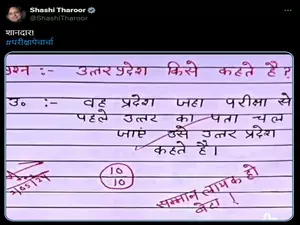 Shashi Tharoor
@ShashiTharoor
शानदार!
#परीक्षापेचर्चा
प्रश्न :- उत्तर प्रदेश किसे कहते है?
उ० :- वह प्रदेश जहा परीक्षा से
पहले उत्तर का पता चल
जाएं उसे उत्तर प्रदेश
कहते है।
10
10
सम्मान लायक हो
बेटा!